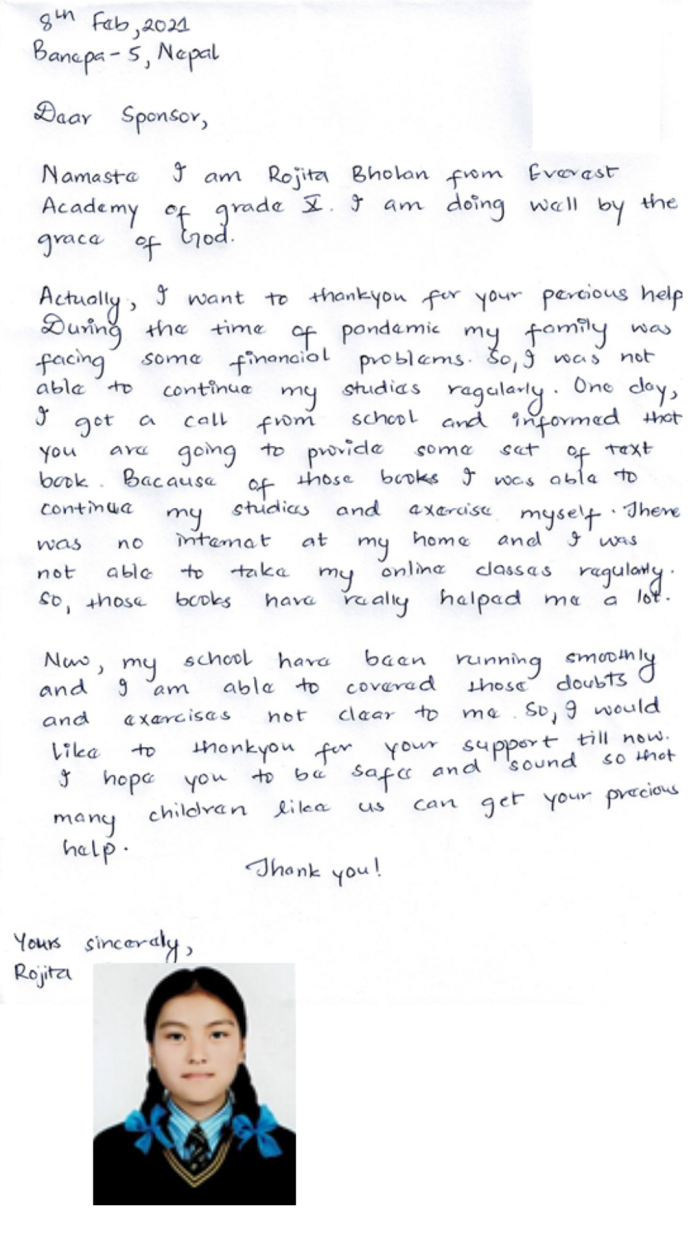 8th Feb, 2021
Banepa-5, Nepal
Dear Sponsor,
Namaste I am Rojita Bholan from Everest
Academy of grade X. I am doing well by the
grace of God.
Actually, I want to thankyou for your percious help
During the time of pandemic my family was
facing some financial problems. So, I was not
able to continue my studies regularly. One day,
I got a call from school and informed that
you are going to provide some set of text
book. Because of those books I was able to
continue my studies and exercise myself. There
was no internet at my home and I was
not able to take my online classes regularly.
So, those books have really helped me a lot.
Now, my school have been running smoothly
and I am able to covered those doubts
and exercises not clear to me. So, I would
like to thankyou for your support till now.
I hope you to be safe and sound so that
many children like us can get your precious
help.
Thank you!
Yours sincerely,
Rojita